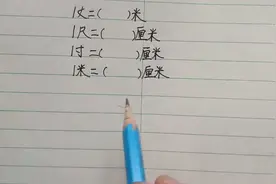 1丈=( )米
1尺=( )厘米
1寸=( )厘米
1米=( )厘米